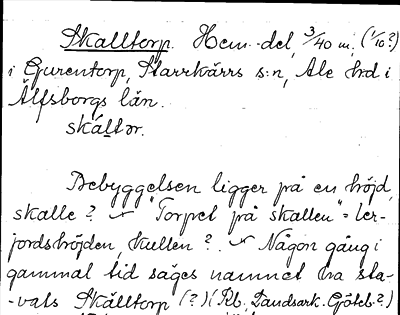 Skalltorp. Hem. del, 3/40 m, (1/10?)
i Gurentorp, Starrkärrs s:n, Ale hrd i
Älfsborgs län.
skáltɔr.
Bebyggelsen ligger på en höjd,
skalle? "Torpet på skallen" = ler-
jordshöjden, kullen? Någon gång i
gammal tid säges namnet ha sta-
-vats Skälltorp (?) (Rb. Landsark. Göteb.?)